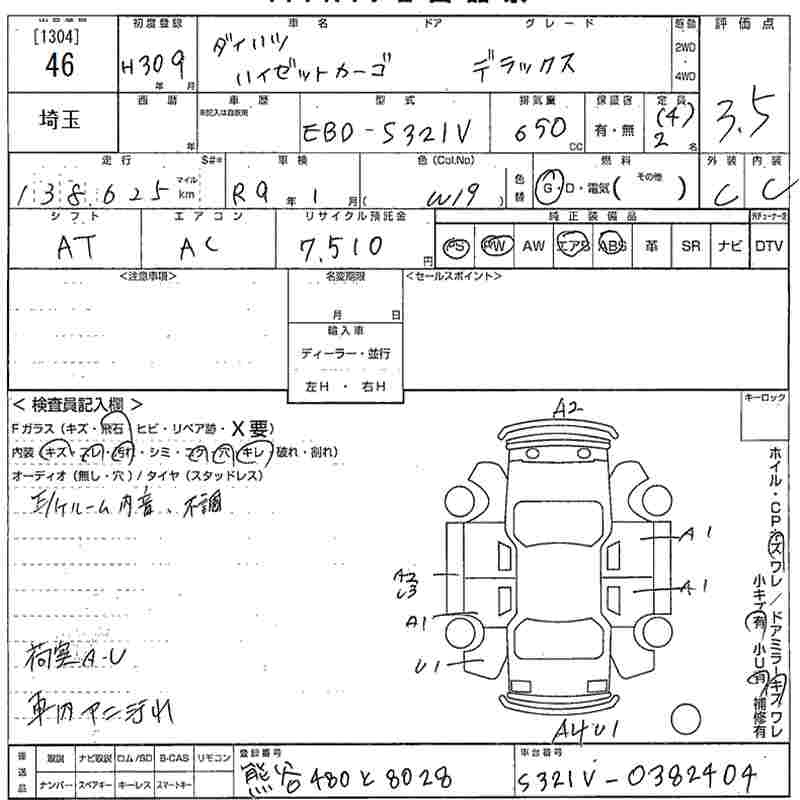 [1304] 初度登録 車名 ドア グレード 駆動 評価点
46 H30 9 年 月 ダイハツ ハイゼットカーゴ デラックス 2WD 4WD 3.5
埼玉 西暦 年 車歴 未記入は自家用 型式 EBD-S321V 排気量 650 CC 保証書 有・無 定員 (4) 2 名
走行 S#* 車検 色(Col.No) 燃料 外装 内装
138,625 マイル km R9 年 1 月( W19 ) 色替 G・D・電気( その他 ) C C
シフト エアコン リサイクル預託金 純正装備品
AT AC 7,510 円 PS PW AW エアB ABS 革 SR ナビ DTV
<注意事項> 名変期限 <セールスポイント>
月 日
輸入車
ディーラー・並行
左H ・ 右H
< 検査員記入欄 > キーロック
Fガラス(キズ・飛石・ヒビ・リペア跡・X要)
内装(キズ・スレ・汚れ・シミ・コゲ・穴・キレ・破れ・割れ)
オーディオ(無し・穴)/タイヤ(スタッドレス)
不調
A2
A1
A2
U3
A1
A1
U1
A4U1
ホイル・CP キズワレ/ドアミラーキズワレ
小キズ有 小U有 補修有
荷室A-U
車内ヤニ汚れ
後送品 取説 ナビ取説 ロム/SD B-CAS リモコン 登録番号 車台番号
ナンバー スペアキー キーレス スマートキー 熊谷480と8028 S321V-0382404